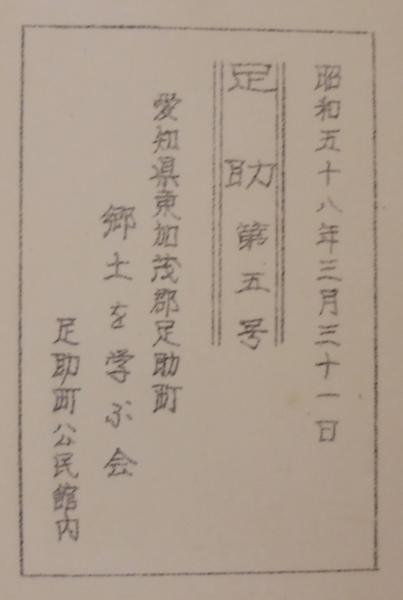 昭和五十八年三月三十一日
足助 第五号
愛知県東加茂郡足助町
郷土を学ぶ会
足助町公民館内